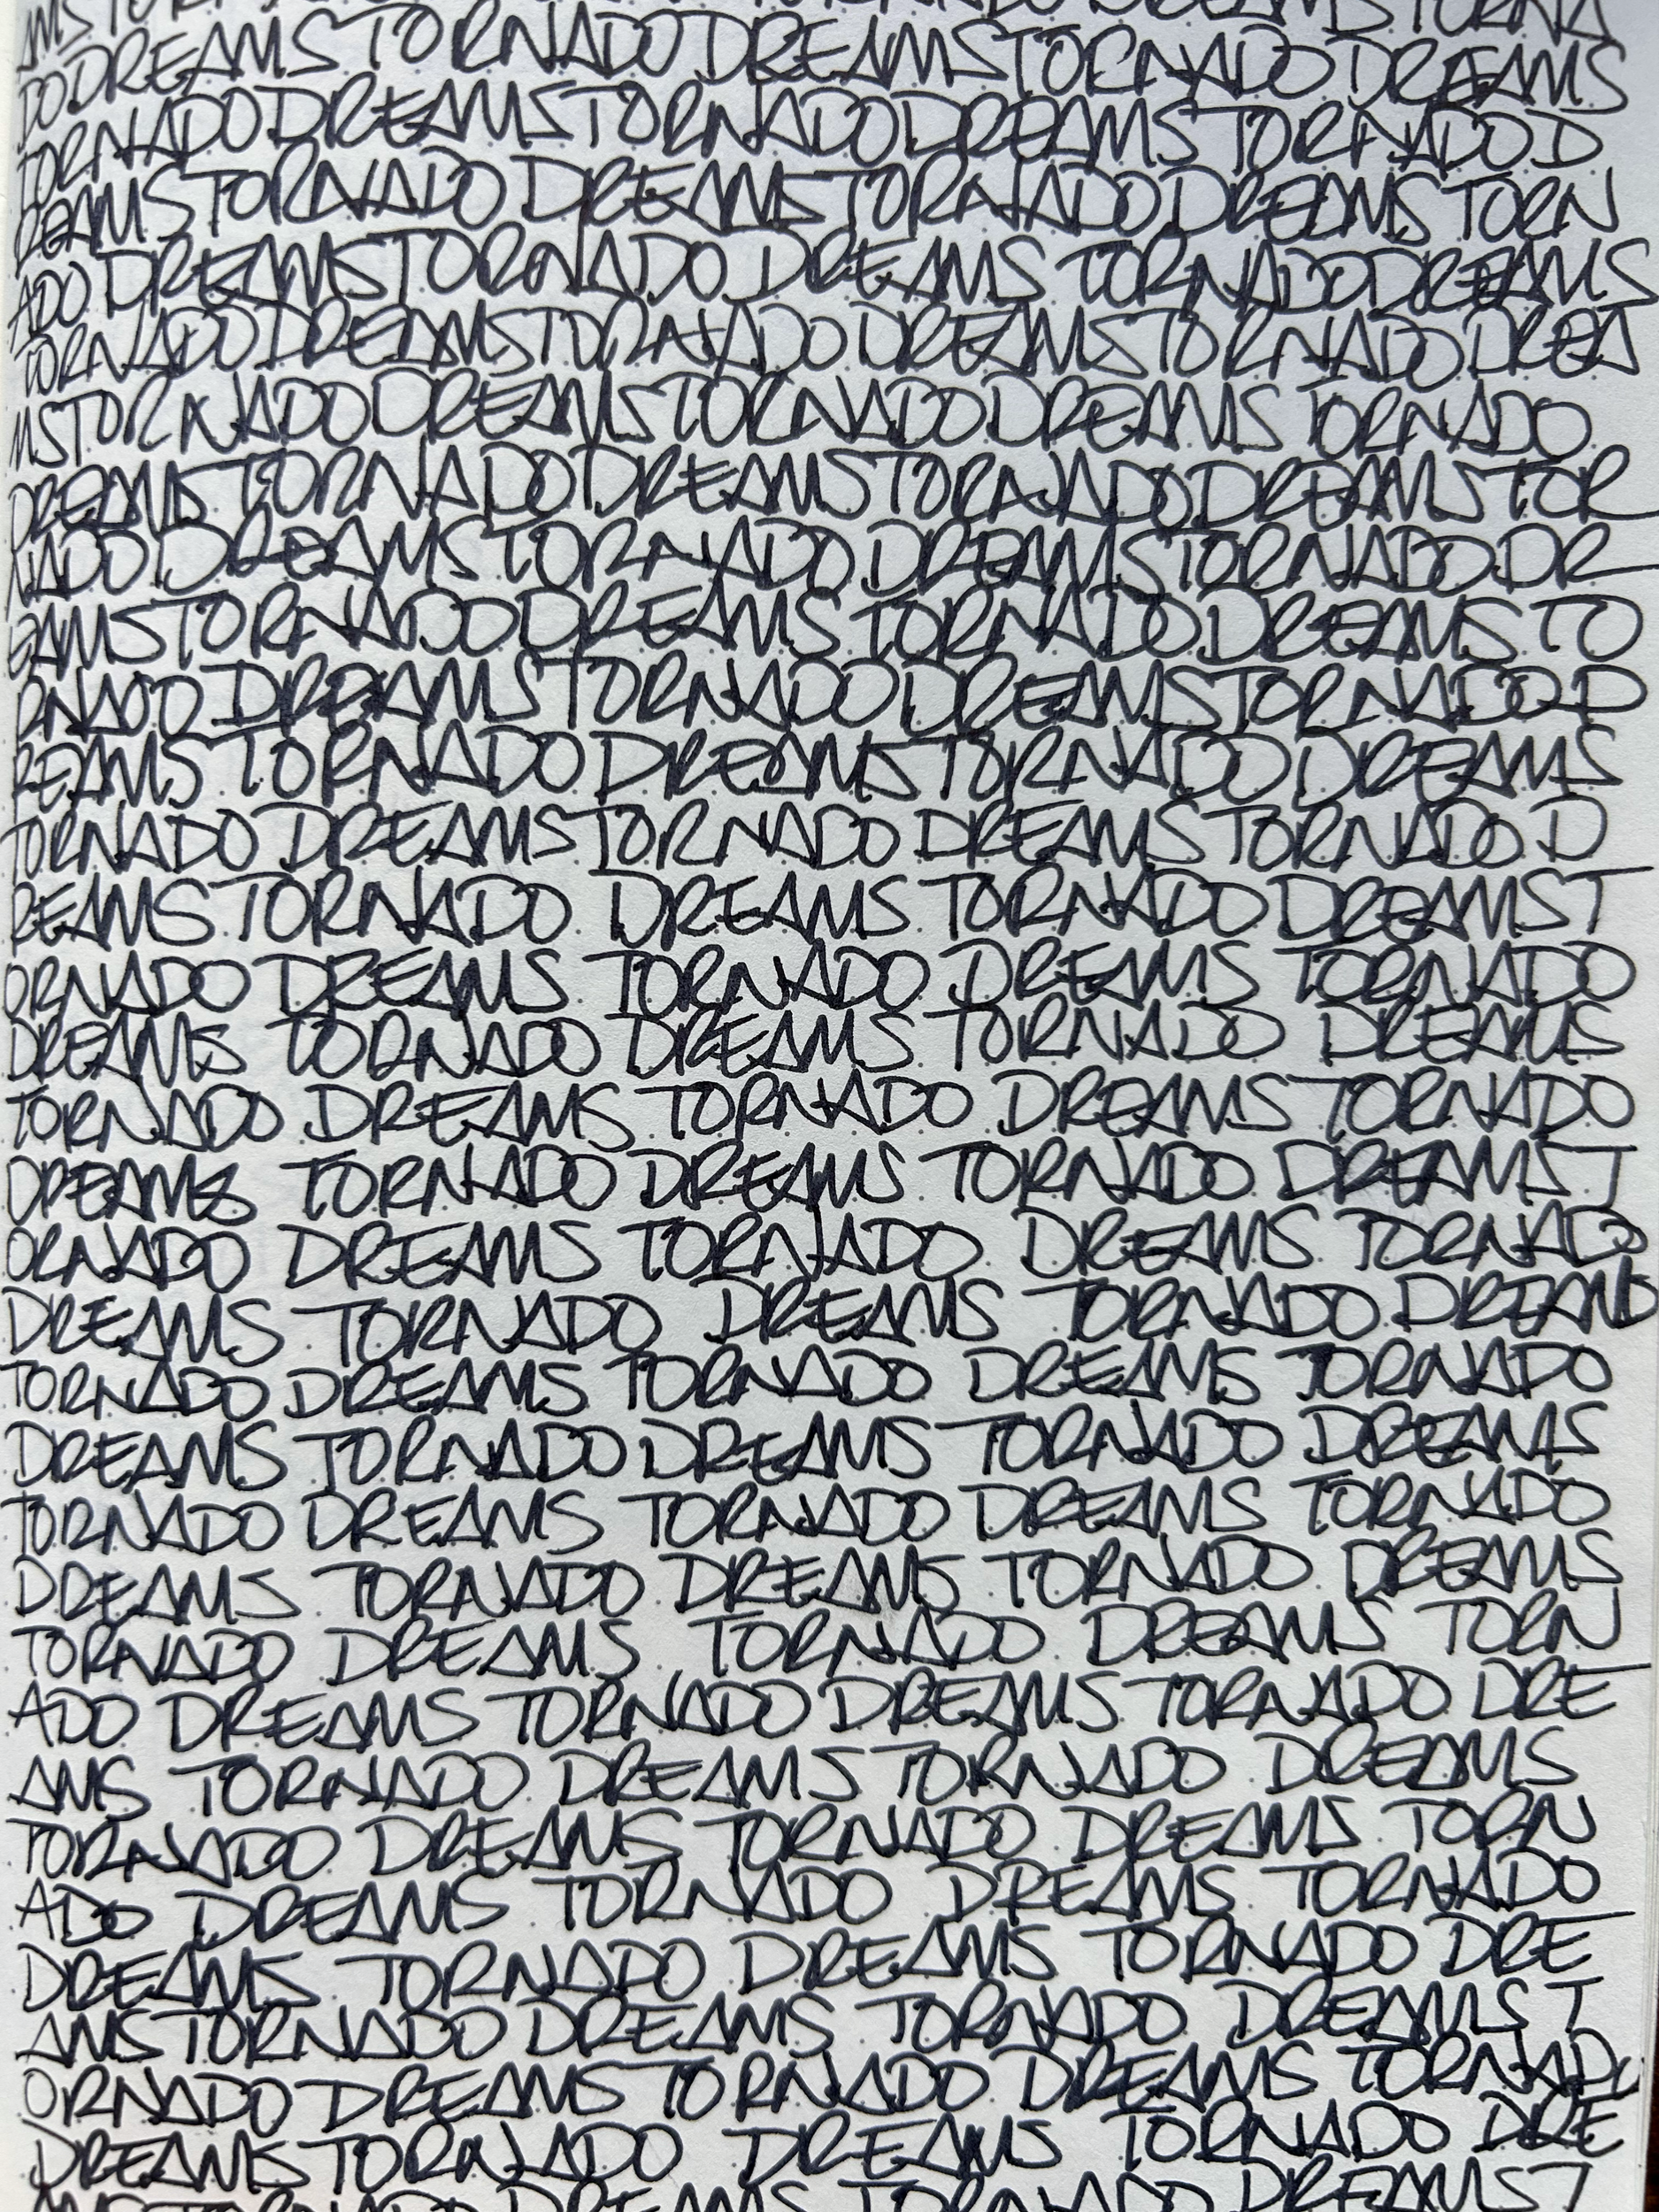 AMS TORNADO DREAMS TORNA
DO DREAMS TORNADO DREAMS TORNADO DREAMS
TORNADO DREAMS TORNADO DREAMS TORNADO D
REAMS TORNADO DREAMS TORNADO DREAMS TORN
ADO DREAMS TORNADO DREAMS TORNADO DREAMS
TORNADO DREAMS TORNADO DREAMS TORNADO DREA
MS TORNADO DREAMS TORNADO DREAMS TORNADO
DREAMS TORNADO DREAMS TORNADO DREAMS TOR
NADO DREAMS TORNADO DREAMS TORNADO DR
EAMS TORNADO DREAMS TORNADO DREAMS TO
RNADO DREAMS TORNADO DREAMS TORNADO D
REAMS TORNADO DREAMS TORNADO DREAMS
TORNADO DREAMS TORNADO DREAMS TORNADO D
REAMS TORNADO DREAMS TORNADO DREAMS T
ORNADO DREAMS TORNADO DREAMS TORNADO
DREAMS TORNADO DREAMS TORNADO DREAMS
TORNADO DREAMS TORNADO DREAMS TORNADO
DREAMS TORNADO DREAMS TORNADO DREAMS T
ORNADO DREAMS TORNADO DREAMS TORNADO
DREAMS TORNADO DREAMS TORNADO DREAMS
TORNADO DREAMS TORNADO DREAMS TORNADO
DREAMS TORNADO DREAMS TORNADO DREAMS
TORNADO DREAMS TORNADO DREAMS TORNADO
DREAMS TORNADO DREAMS TORNADO DREAMS
TORNADO DREAMS TORNADO DREAMS TORN
ADO DREAMS TORNADO DREAMS TORNADO DRE
AMS TORNADO DREAMS TORNADO DREAMS
TORNADO DREAMS TORNADO DREAMS TORN
ADO DREAMS TORNADO DREAMS TORNADO
DREAMS TORNADO DREAMS TORNADO DRE
AMS TORNADO DREAMS TORNADO DREAMS T
ORNADO DREAMS TORNADO DREAMS TORNADO
DREAMS TORNADO DREAMS TORNADO DRE
AMS TORNADO DREAMS TORNADO DREAMS T